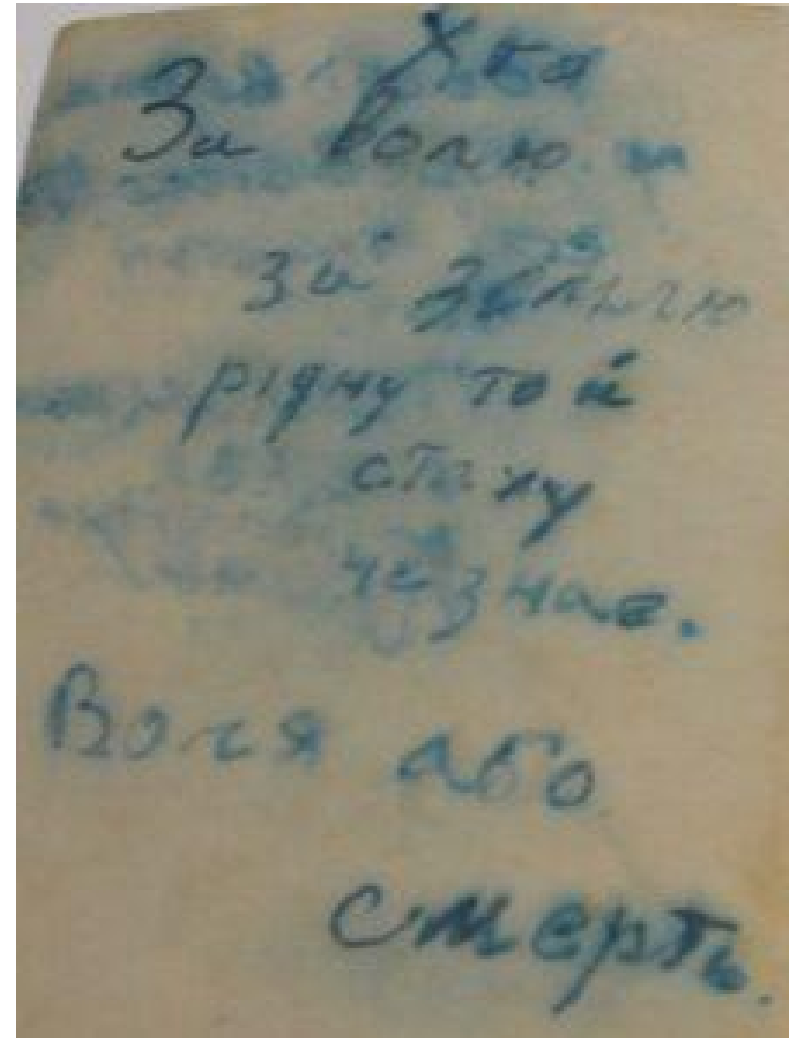 За волю
за землю
рідну той
страху
не знає.
Воля або
смерть.